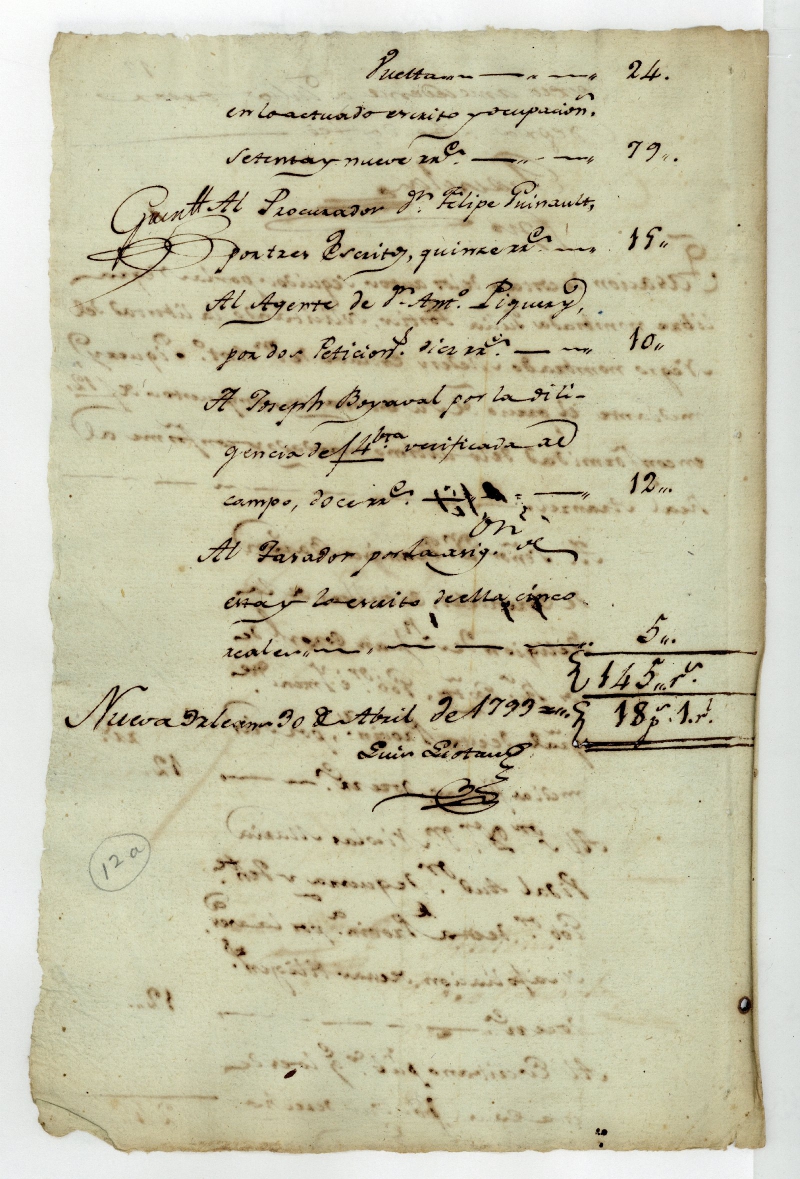 Vuelta 24.
en lo actuado escrito y ocupacion.
setenta y nueve rr.s 79.
Al Procurador Dn. Felipe Guinault,
por tres Escritos, quinze rr.s 15
Al Agente de Dn. Anto. Piquery,
por dos Peticions. diez rr.s 10
A Joseph Boyaval por la dili-
gencia de verificada al
campo, doce rr.s 12
Al Tasador por la de
esta y lo escrito de ella cinco
reales 5
145 rs.
Nueva Orleans 30 de Abril de 1799 18 ps. 1. rl.
Luis Liotaud
12a